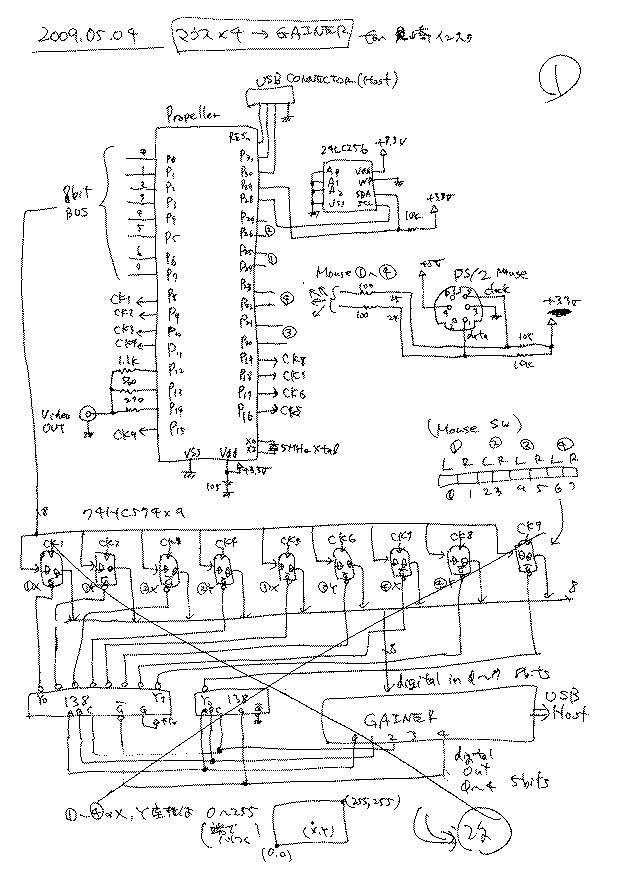 2009.05.04
マウス×4 → GAINER
for
インスタ
①
USB CONNECTOR (Host)
Propeller
RESn
24LC256
+3.3V
8bit
BUS
P0
P1
P2
P3
P4
P5
P6
P7
P8
P9
P10
P11
P12
P13
P14
P15
CK1
CK2
CK3
CK4
1.1K
560
270
Video
OUT
CK9
P31
P30
P29
P28
P27
P26
P25
P24
P23
P22
P21
P20
P19
P18
P17
P16
②
①
④
③
CK8
CK7
CK6
CK5
VSS
Vdd
+3.3V
105
X0
X1
5MHz Xtal
A0
A1
A2
VSS
Vdd
WP
SDA
SCL
+3.3V
10K
Mouse ①~④
100
100
+5V
PS/2 Mouse
clock
data
+3.3V
10K
(Mouse SW)
① ② ③ ④
L R L R L R L R
0 1 2 3 4 5 6 7
8
74HC574×9
CK1 CK2 CK3 CK4 CK5 CK6 CK7 CK8 CK9
①X ①Y ②X ②Y ③X ③Y ④X ④Y
8
8
digital in 0~7 8bits
Y0 Y7
138
A B C G G
138
GAINER
0 1 2 3 4
USB
Host
digital
out
0~4 5bits
①~④のX, Y座標は 0~255
(端で
(255,255)
(X,Y)
(0,0)